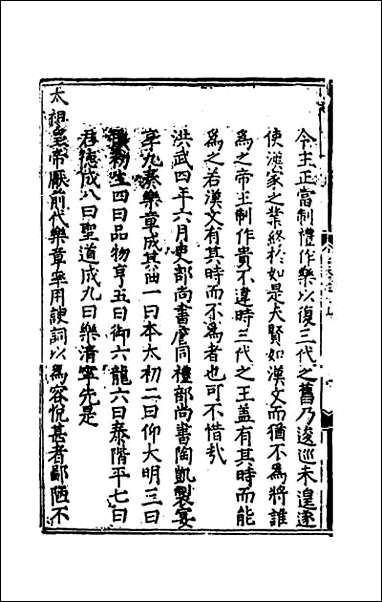 今主正當制禮作樂以復三代之舊乃逡巡未遑遂
使漢家之業終於如是夫賢如漢文而猶不為將誰
為之帝王制作貴不違時三代之王蓋有其時而能
為之若漢文有其時而不為者也可不惜哉
洪武四年六月吏部尚書詹同禮部尚書陶凱製宴
享九奏樂章成其曲一曰本太初二曰仰大明三曰
初生四曰品物亨五曰御六龍六曰泰階平七曰
君德成八曰聖道成九曰樂清寧先是
太祖皇帝厭前代樂章率用諛詞以為容悅甚者鄙陋不